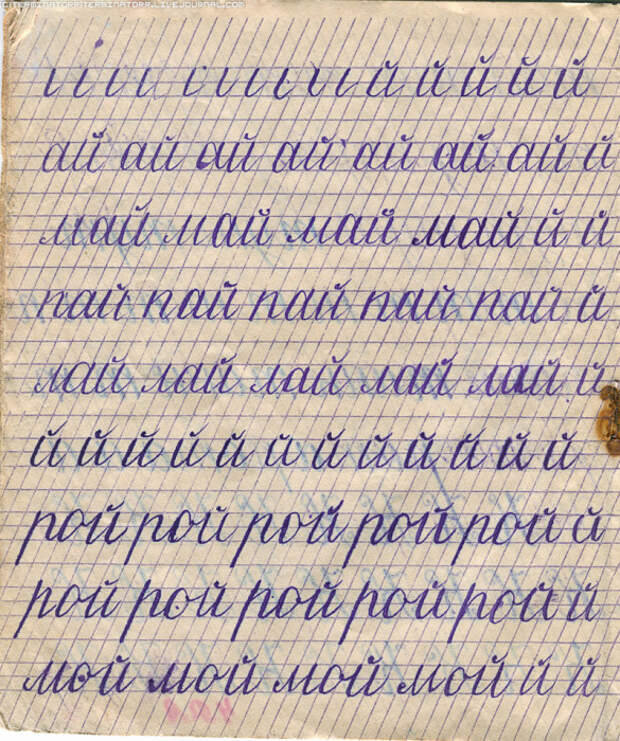 STERMINATORR.LIVEJOURNAL.COM
и и и и и и и и й й й й й
ай ай ай ай ай ай ай й
май май май май й й
пай пай пай пай пай й
лай лай лай лай лай й
й й й й й й й й й й й й
рой рой рой рой рой й
рой рой рой рой рой й
мой мой мой мой й й